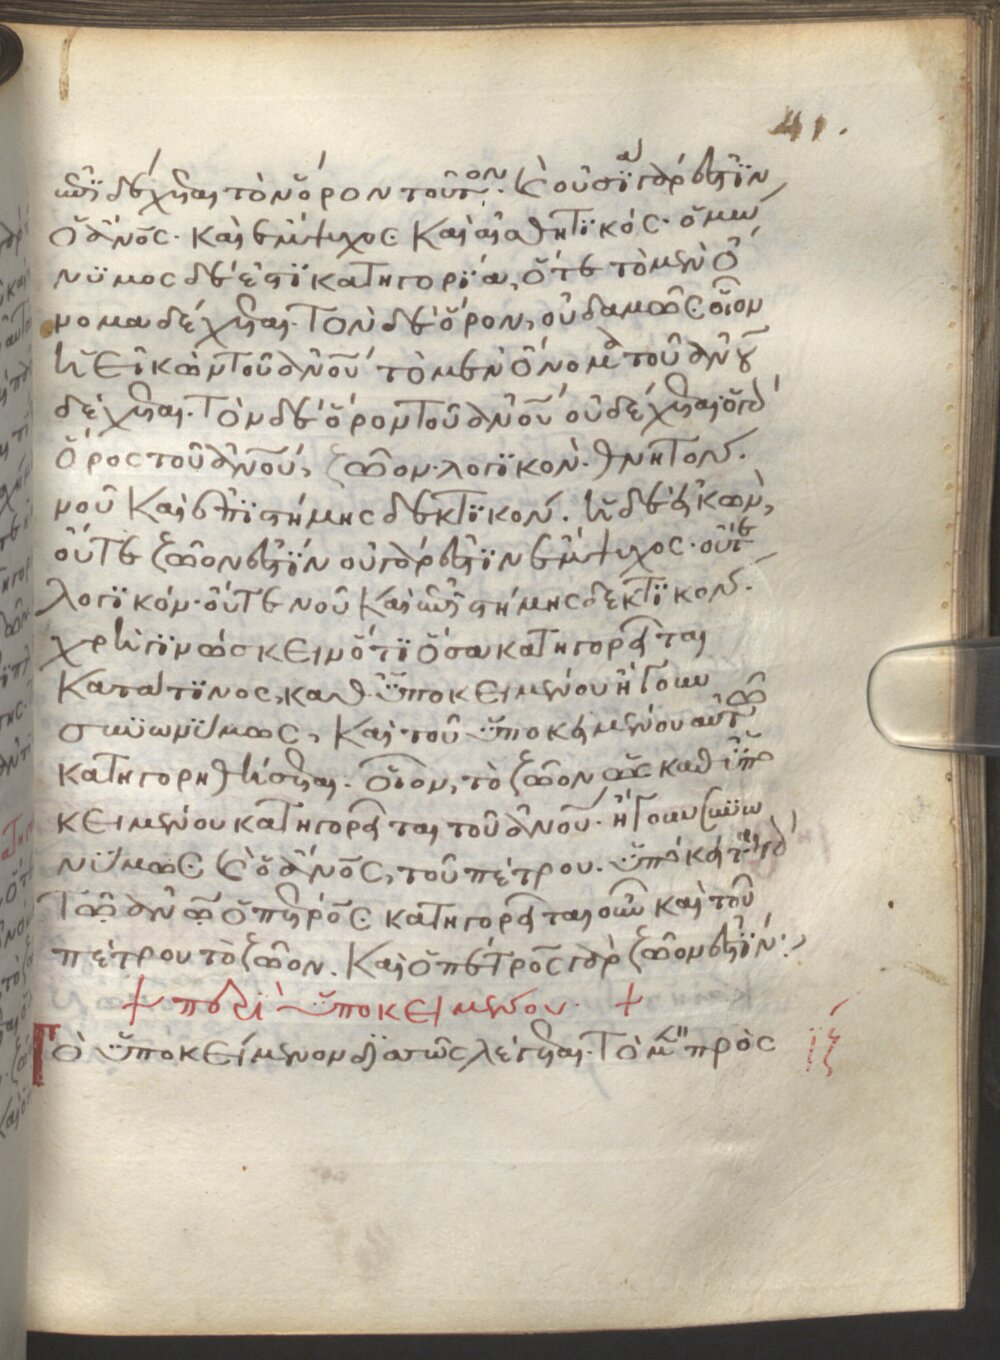 41.
ἐπιδέχεται τὸν ὅρον τούτον. καὶ οὐσία γάρ ἐστιν
ὁ ἄνος. καὶ ἔμψυχος καὶ αἰσθητικός. ὁμω
νύμος δὲ ἐστι κατηγορία, ὅτε τὸ μὲν ὄ
νομα δέχεται. τὸν δὲ ὅρον, οὐδαμῶς οἷον
ἡ εἰκὼν τοῦ ἀνου τὸ μὲν ὄνομα τοῦ ἀνου
δέχεται. τὸν δὲ ὅρον τοῦ ἀνου οὐ δέχεται
ὅρος τοῦ ἀνου, ζῶον. λογικὸν. θνητὸν.
νοῦ καὶ ἐπιστήμης δεκτικόν. ἡ δὲ εἰκὼν,
οὔτε ζῶον ἐστὶν οὐ γάρ ἐστιν ἔμψυχος. οὔτε
λογικόν. οὔτε νοῦ καὶ ἐπιστήμης δεκτικόν.
χρὴ γινώσκειν ὅτι ὅσα κατηγορεῖται
κατά τινος, καθ ὑποκειμένου ἤγουν
συνωνύμως, καὶ τοῦ ὑποκειμένου αὐτῶ
κατηγορηθήσεται. οἷον, τὸ ζῶον ὡς καθ ὑπο
κειμένου κατηγορεῖται τοῦ ἀνου. ἤγουν συνω
νύμως καὶ ὁ ἄνος, τοῦ πέτρου. ὑπόκειται γὰρ
τῶ ἀνω ὁ πέτρος κατηγορεῖται οὖν καὶ τοῦ
πέτρου τὸ ζῶον. καὶ ὁ πέτρος γὰρ ζῶον ἐστίν.
+ περὶ ὑποκειμένου. +
Τὸ ὑποκείμενον διττῶς λέγεται. τὸ μὲν πρὸς
ιζ